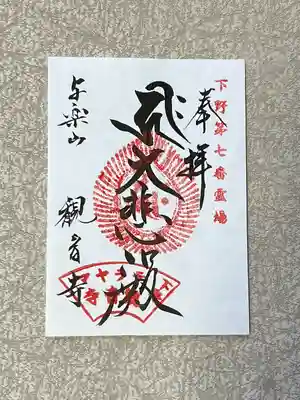 下野第七番霊場
奉拝
大悲殿
与楽山
観音寺